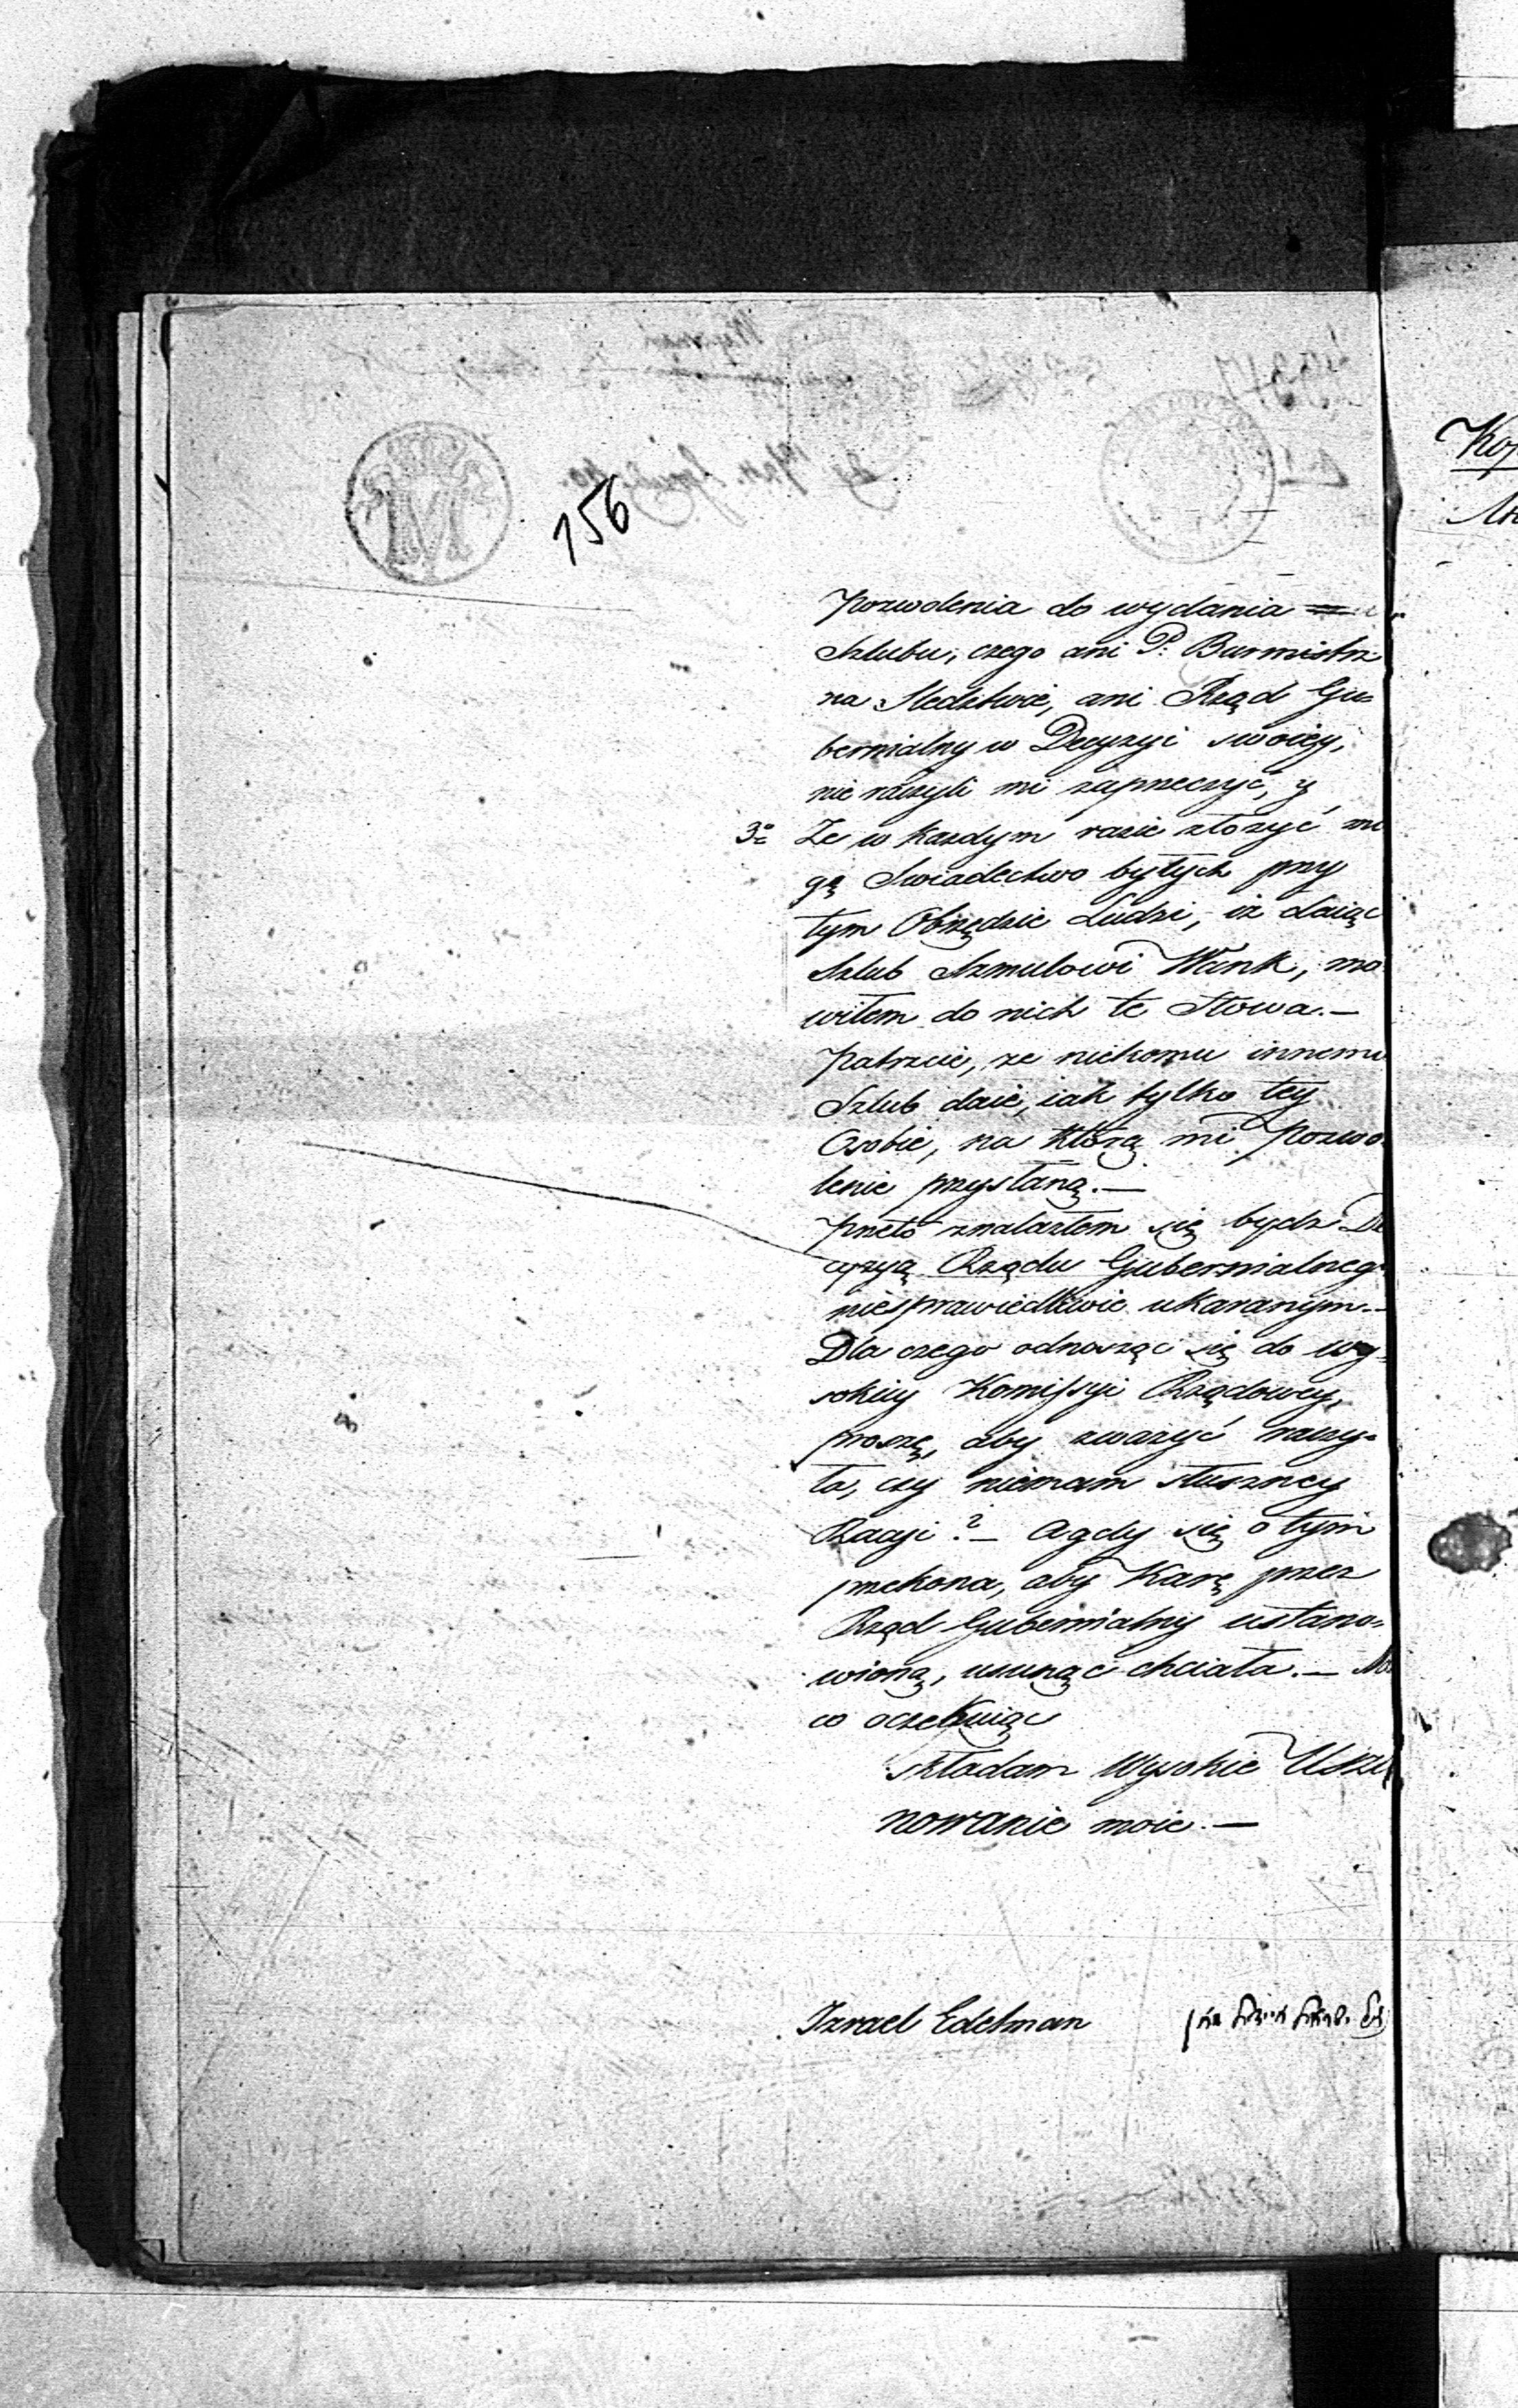 156
Pozwolenia do wydania
Szlubu, czego ani P: Burmistrz
na Sledztwie, ani Rząd Gu=
bernialny w Decyzyi swoiey,
nie raczyli mi zaprzeczyć, y
3o Ze w każdym razie złożyć mo
gę Swiadectwo byłych przy
tym Obrzędzie Ludzi, iż daiąc
Szlub Szmulowi Wank, mo
wiłem do nich te Słowa.—
Patrzcie, ze nickomu innemu
Szlub daie, iak tylko tey
Osobie, na którą mi Pozwo
lenie przysłaną.—
Przeto znalazłem się bydz De
cyzyą Rządu Gubernialnego
niesprawiedliwie ukaranym.—
Dla czego odnosząc się do wy=
sokiey Komissyi Rządowey,
proszę, aby zważyć raczy=
ła, czy niemam słuszney
Racyi? — A gdy się o tym
przekona, aby Karę przez
Rząd Gubernialny ustano=
wioną, usunąć chciała.—
co oczekuiąc
składam Wysokie Usza
nowanie moie.—
Izrael Edelman
ישראל איידעלמאן
Kop